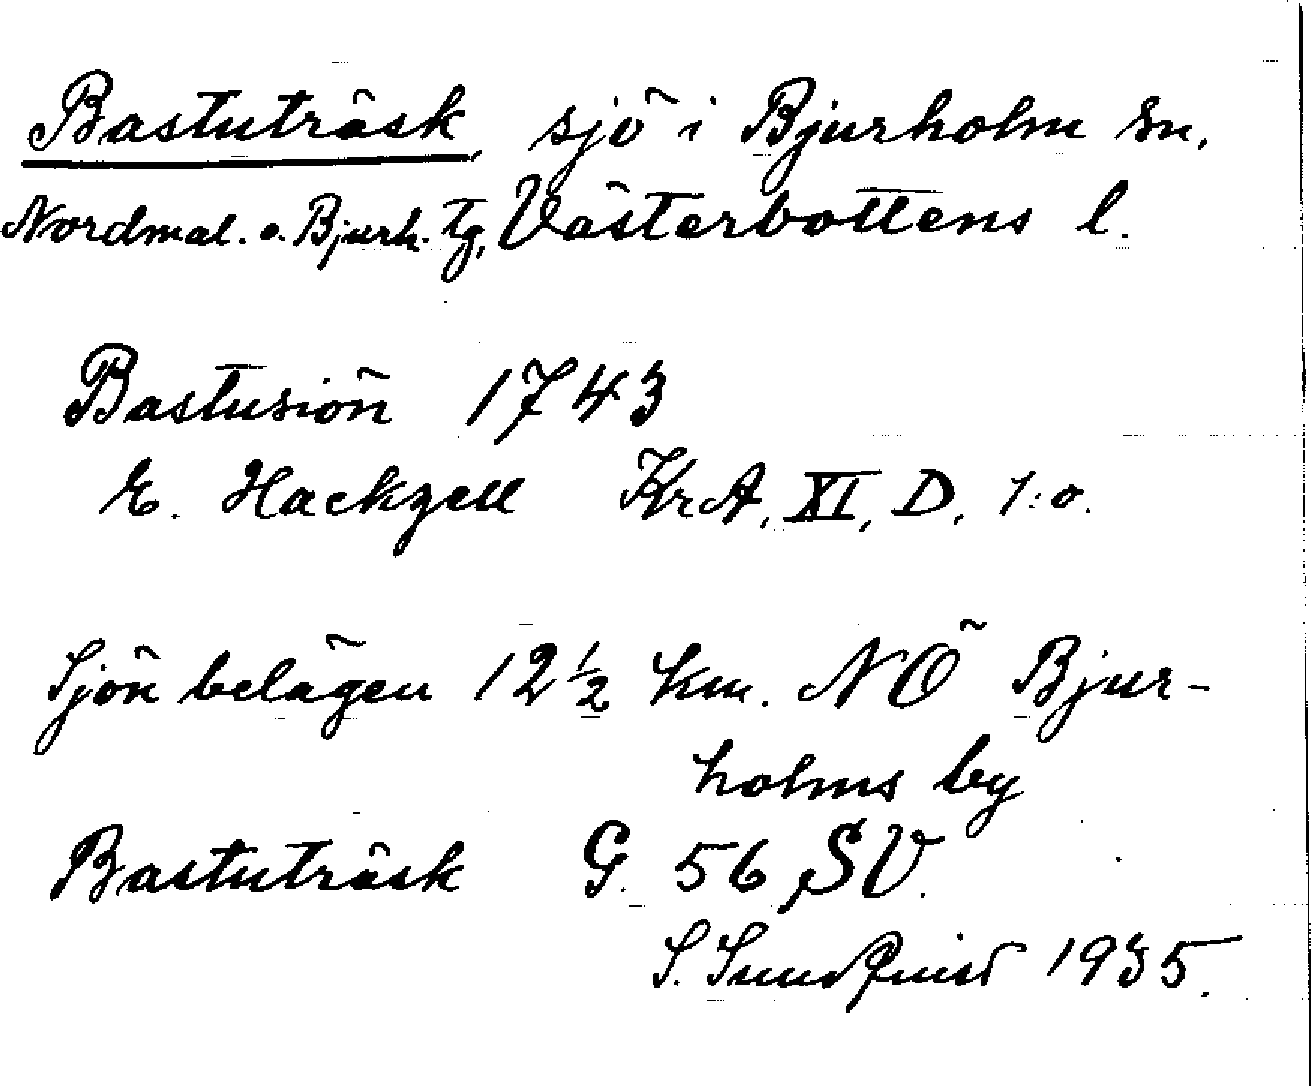 Bastuträsk, sjö i Bjurholm sn,
Nordmal. o. Bjurh. tg, Västerbottens l.
Bastusiön 1743
E. Hackzell KrA, XI, D, 1:o.
Sjön belägen 12 1/2 km. NÖ Bjur-
holms by
Bastuträsk G. 56, SV.
S. Sundquist 1935.